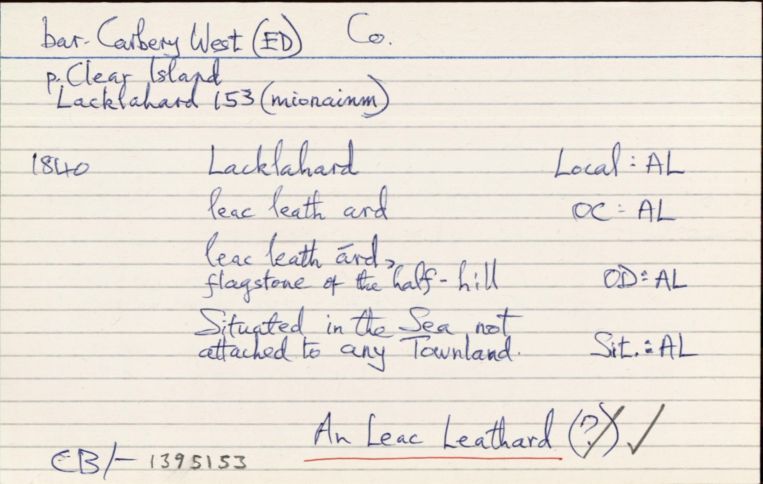 bar. Carbery West (ED) Co.
p. Clear Island
Lacklahard 153 (mionainm)
1840 Lacklahard Local : AL
leac leath ard OC : AL
leac leath ārd,
flagstone of the half-hill OD : AL
Situated in the Sea not
attached to any Townland. Sit. : AL
An Leac Leathard (?) ✓
EB/- 1395153